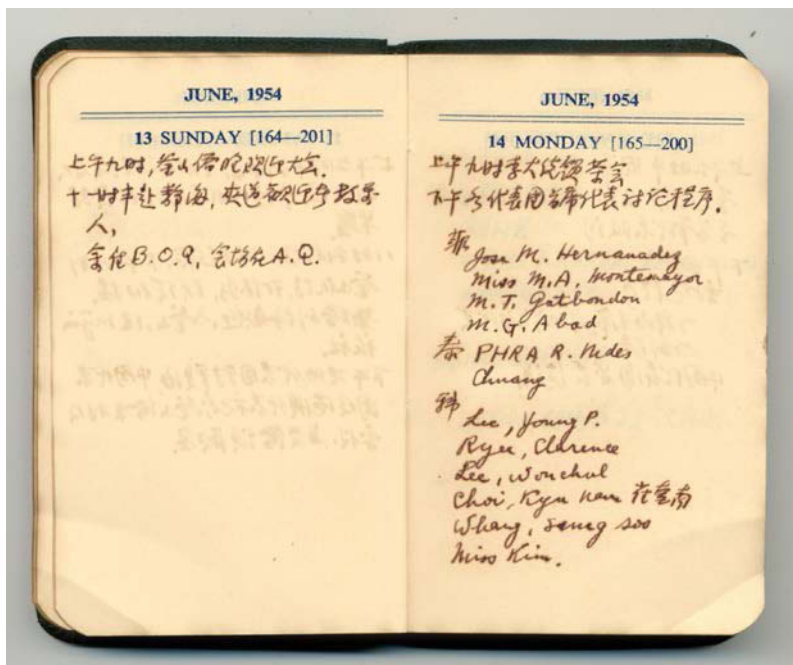 JUNE, 1954
13 SUNDAY [164—201]
上午九时,釜山侨胞欢迎大会.
十一时半赴静海,夹道欢迎乎数万
人,
余住B.O.Q,会场在A.Q.
JUNE, 1954
14 MONDAY [165—200]
上午九时李大统领茶会
下午各代表团首席代表讨论程序.
菲
Jose M. Hernanadez
Miss M.A. Montemayor
M.T. Gatbondon
M.G. Abad
泰 PHRA R. Nides
Chuang
韩
Lee, Young P.
Ryee, Clarence
Lee, Wonchul
Choi, Kyu nam 崔奎南
Whang, Sung soo
Miss Kim.